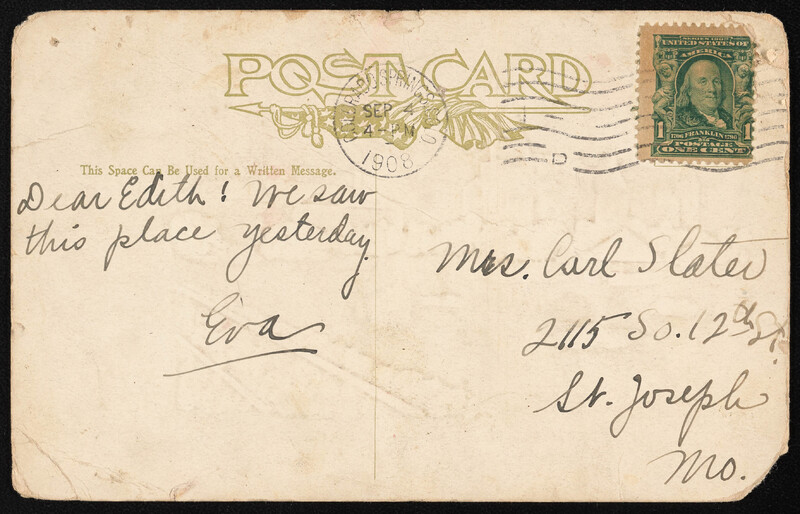 POST CARD
COLORADO SPRINGS COLO
SEP 4
4-PM
1908
D
SERIES 1902
UNITED STATES OF
AMERICA
1 1706 FRANKLIN 1790 1
POSTAGE
ONE CENT
This Space Can Be Used for a Written Message.
Dear Edith! We saw
this place yesterday.
Eva
Mrs. Carl Slater
2115 So. 12th St.
St. Joseph
Mo.